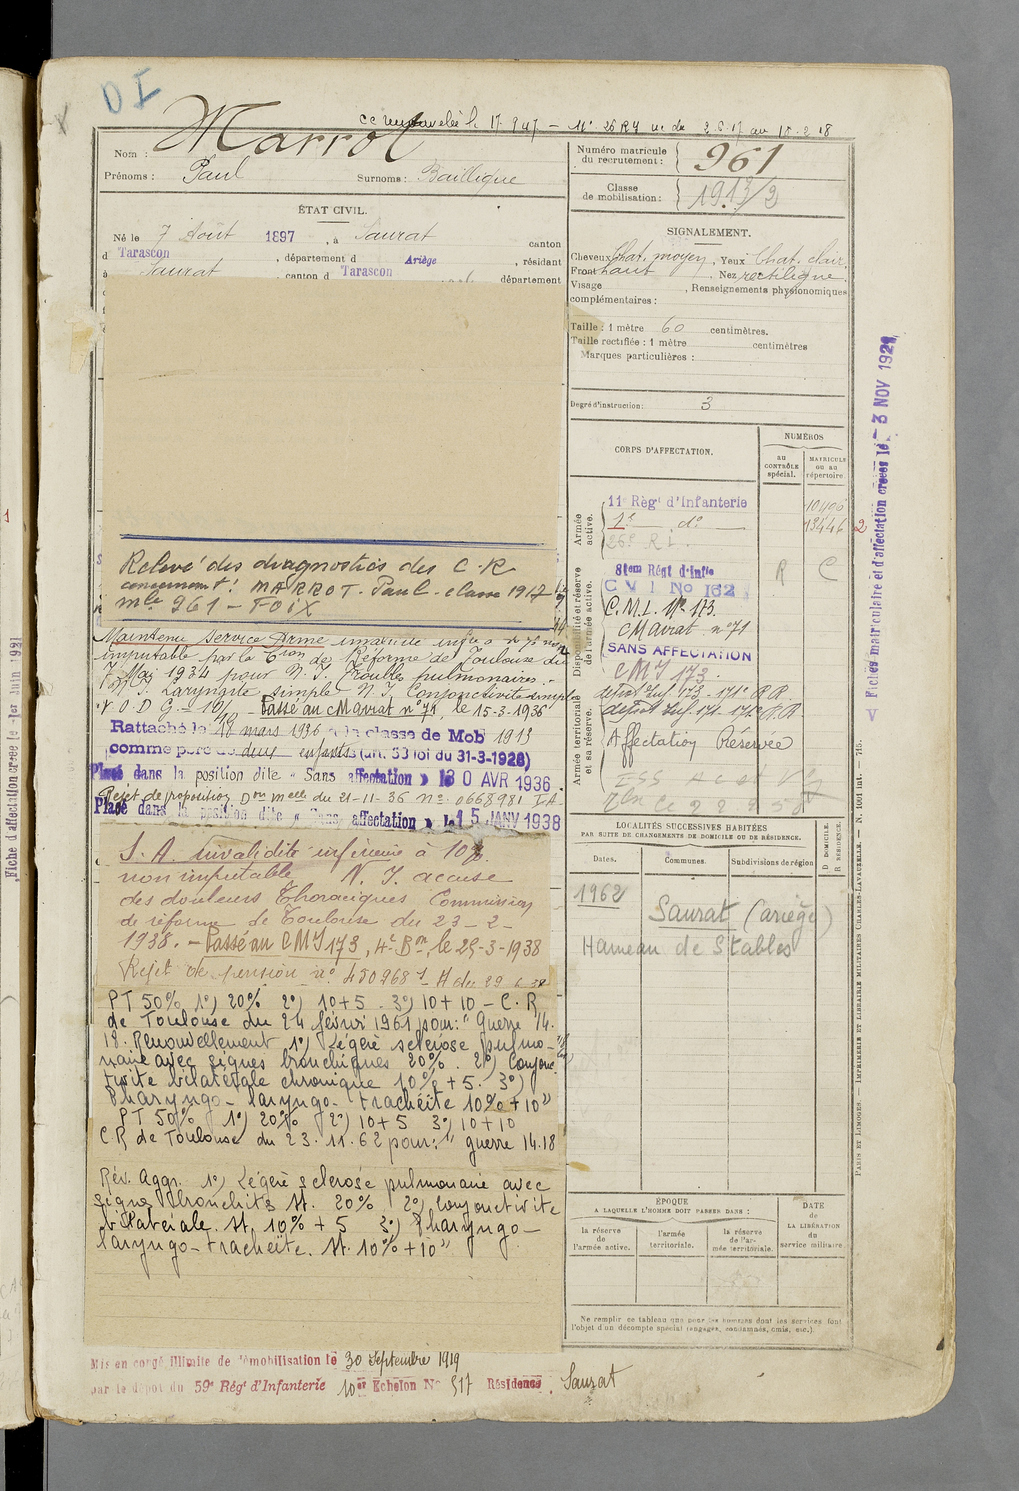 DI
cc renouvelée le 17-9-47 — N° 26 RY
Marrot
Nom :
Prénoms : Paul Surnoms : Baillique
Numéro matricule du recrutement : 961
Classe de mobilisation : 1913/2
ÉTAT CIVIL.
Né le 7 Août 1897, à Saurat canton
d Tarascon, département d Ariège, résidant
à Saurat, canton d Tarascon département
SIGNALEMENT.
Cheveux Chat. moyen, Yeux Chat. clair,
Front haut, Nez rectiligne,
Visage , Renseignements physionomiques
complémentaires :
Taille : 1 mètre 60 centimètres.
Taille rectifiée : 1 mètre centimètres
Marques particulières :
Degré d'instruction : 3
Relevé des diagnostics des C.R
concernant : MARROT. Paul. classe 1917
mle 961 - FOIX
Maintenu Service Armé invalidité infre à 10 % non
imputable par la Cion de Réforme de Toulouse du
7 Mai 1934 pour N.I. Troubles pulmonaires.-
N.I. Laryngite simple N.I. Conjonctivite simple
V.O.D.G. = 10% - Passé au CM aviat n° 71, le 15-3-1936
Rattaché le 18 mars 1936 à la classe de Mob 1913
comme père de deux enfants (art. 53 loi du 31-3-1928)
Placé dans la position dite « Sans affectation » le 30 AVR 1936
Rejet de proposition Don Melle du 21-11-36 N° 0668981 I.A.
Placé dans la position dite « Sans affectation » le 15 JANV 1938
S.A. invalidité inférieure à 10%.
non imputable N.I. accuse
des douleurs Thoraciques Commission
de réforme de Toulouse du 23-2-
1938. - Passé au CMI 173, 4e Bon, le 25-3-1938
Rejet de pension n° 450968
PT 50% 1°) 20% 2°) 10+5 3°) 10+10 - C.R
de Toulouse du 24 février 1961 pour : "Guerre 14.
18. Renouvellement 1°) Légère sclérose pulmo-
naire avec signes bronchiques 20%. 2°) Conjonc-
tivite bilatérale chronique 10% + 5. 3°)
Pharyngo-laryngo-trachéite 10% + 10"
PT 50% 1°) 20% 2°) 10+5 3°) 10+10
CR de Toulouse du 23.11.62 pour : "guerre 14.18
Rév. Aggr. 1°) Légère sclérose pulmonaire avec
signes bronchites st. 20% 2°) conjonctivite
bilatérale. st. 10% + 5 3°) Pharyngo-
laryngo-trachéite. st. 10% + 10"
Mis en congé illimité de démobilisation le 30 Septembre 1919
par le dépôt du 59e Régt d'Infanterie 10er Echelon N° 517 Résidence, Saurat
CORPS D'AFFECTATION.
NUMÉROS
au CONTRÔLE spécial.
MATRICULE ou au répertoire.
Armée active.
11e Régt d'Infanterie
1e do 13446
26e R.I.
Disponibilité et réserve de l'armée active.
8tem Régt d'Infie R C
C V I No 162
C.M.I. N° 173
CM aviat. n° 71
SANS AFFECTATION
CMI 173.
Armée territoriale et sa réserve.
dépôt Inf. 173 - 171e R.R.
dépôt Inf. 171 - 171e R.R.
Affectation Réservée
LOCALITÉS SUCCESSIVES HABITÉES
PAR SUITE DE CHANGEMENTS DE DOMICILE OU DE RÉSIDENCE.
Dates. Communes. Subdivisions de région
D DOMICILE. R RÉSIDENCE.
1962 Saurat (ariège)
Hameau de Stables
ÉPOQUE
A LAQUELLE L'HOMME DOIT PASSER DANS :
la réserve de l'armée active.
l'armée territoriale.
la réserve de l'armée territoriale.
DATE de LA LIBÉRATION du service militaire
Ne remplir ce tableau que pour les hommes dont les services font
l'objet d'un décompte spécial (engagés, condamnés, omis, etc.).
Fiches matriculaire et d'affectation créées le - 3 NOV 1921
PARIS ET LIMOGES. — IMPRIMERIE ET LIBRAIRIE MILITAIRES CHARLES-LAVAUZELLE. — N. 1001 int. — 715.
Fiche d'affectation créée le 1er Juin 1921